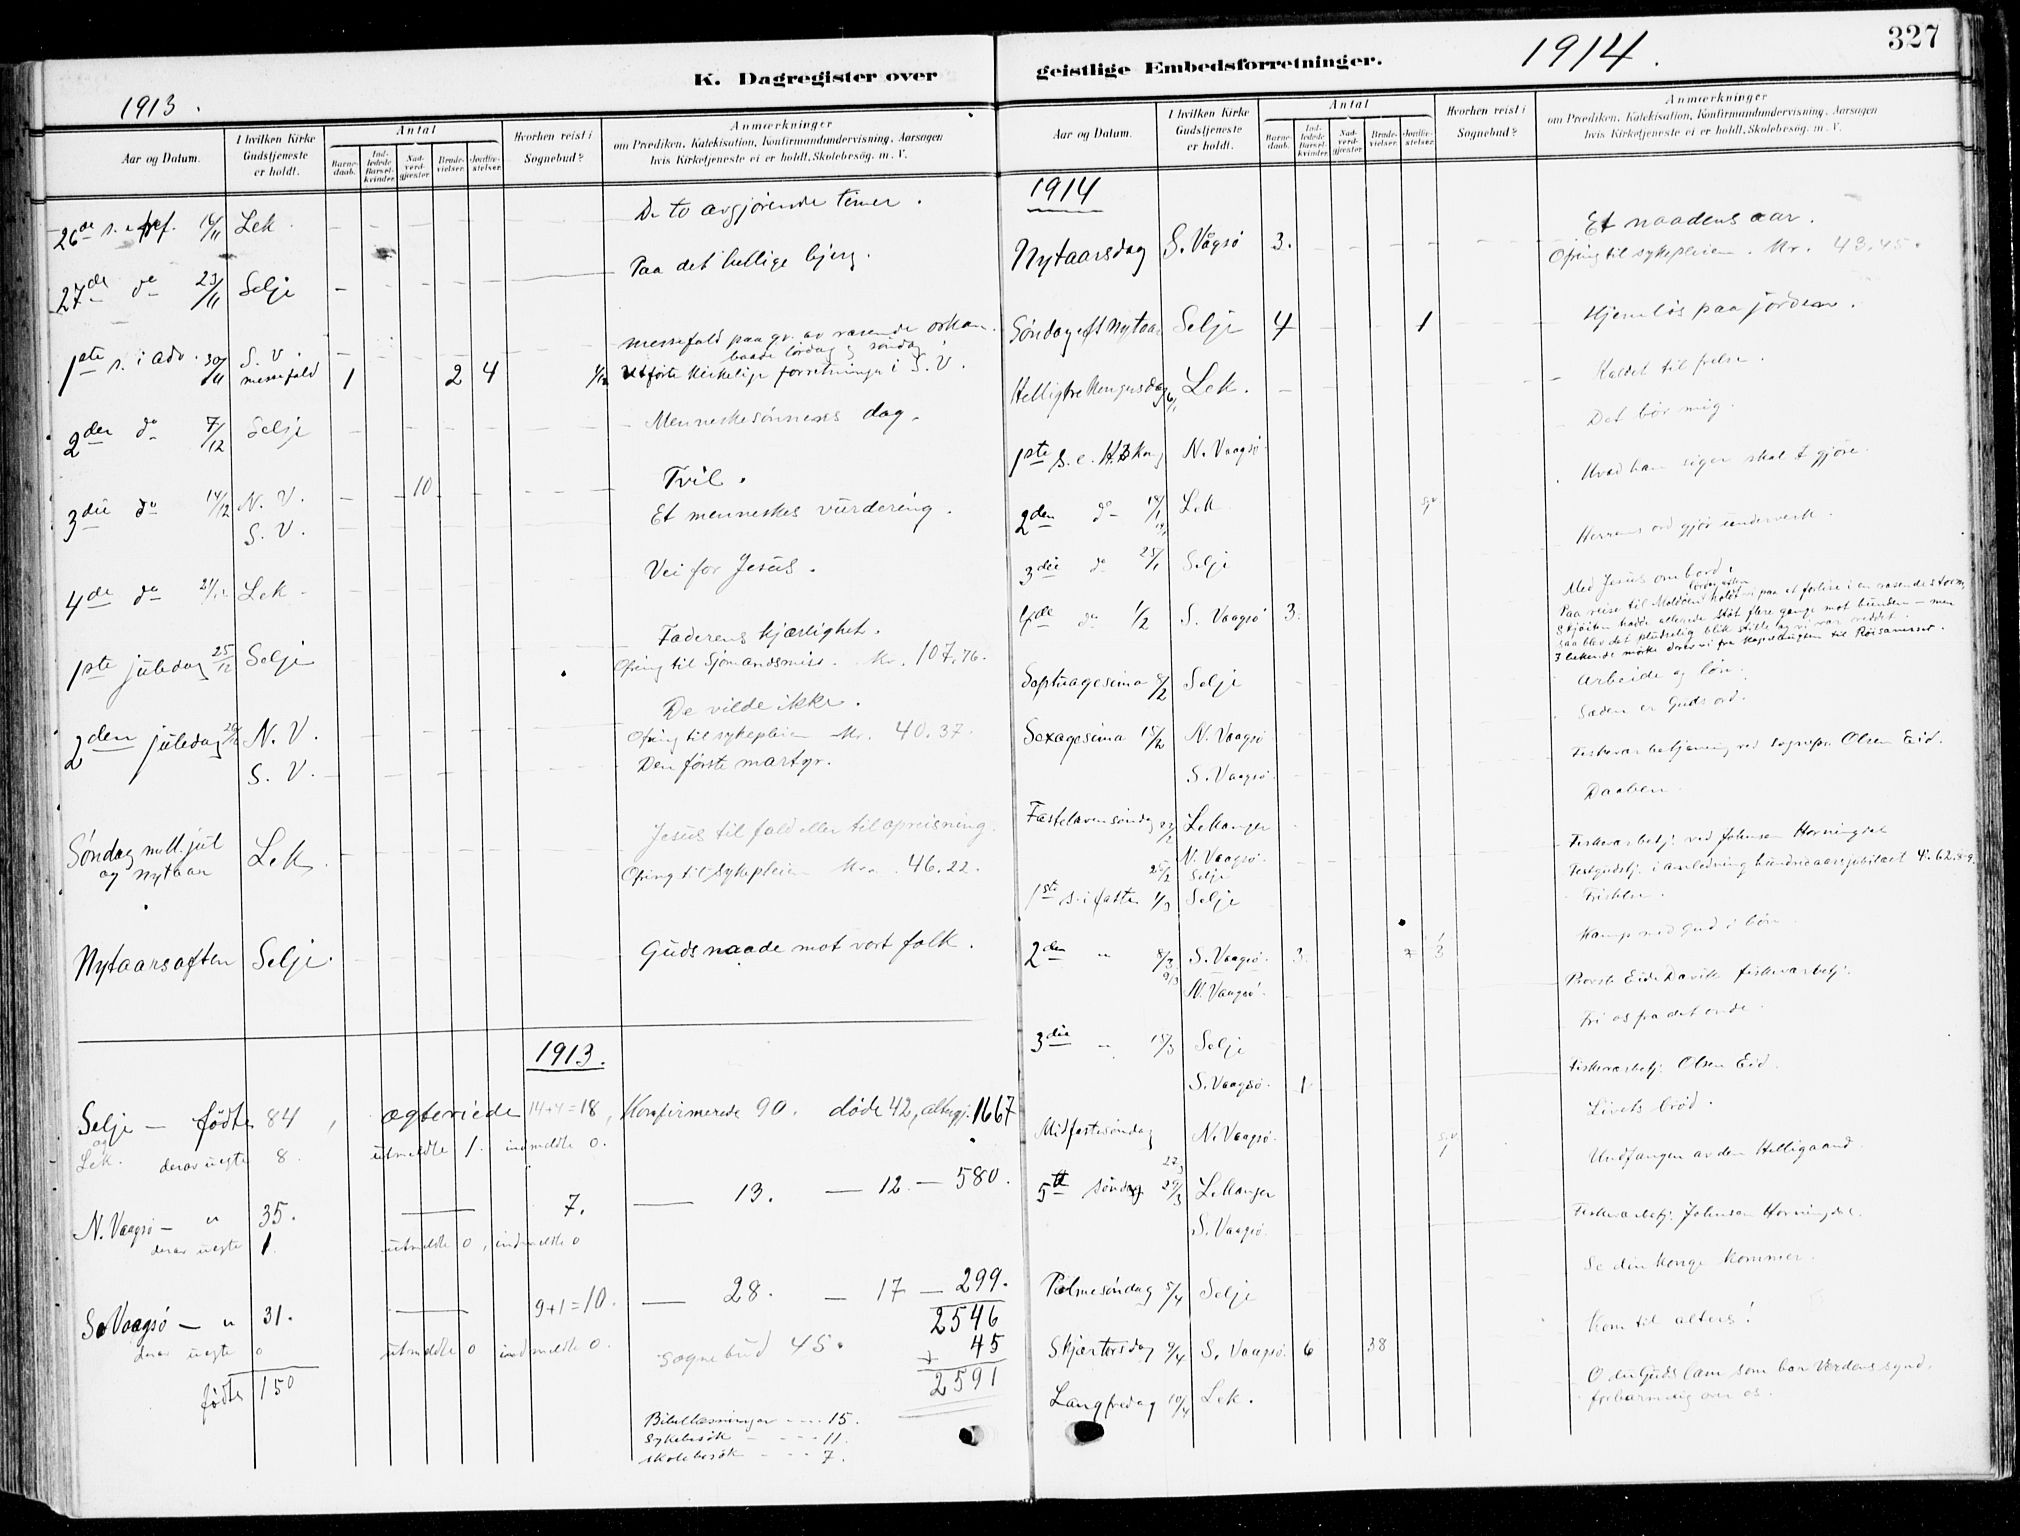 327
K. Dagregister over geistlige Embedsforretninger.
1913.
1914.
Aar og Datum.
I hvilken Kirke Gudstjeneste er holdt.
Antal
Barnedaab.
Indledede Barselkvinder.
Nadverdgjester.
Brudevielser.
Jordfæstelser.
Hvorhen reist i Sognebud?
Anmærkninger
om Prædiken, Katekisation, Konfirmandundervisning, Aarsagen
hvis Kirketjeneste ei er holdt, Skolebesøg, m. V.
26de s. e. tref. 16/11 Lek. De to avgjørende timer.
27de do 23/11 Selje Paa det hellige bjerg.
1ste s. i adv. 30/11 S. V. messefald messefald paa gr. av rasende orkan
baade lørdag og søndag
1 2 4 1/12 Utførte kirkelige forretninger i S. V.
2den do 7/12 Selje Menneskesønnens dag.
3die do 14/12 N. V. 10 Tvil.
S. V. Et menneskes vurdering.
4de do 21/12 Lek. Vei for Jesus.
1ste juledag 25/12 Selje Faderens kjærlighet.
Ofring til Sjömandsmiss. Kr. 107.76.
2den juledag 26/12 N. V. De vilde ikke.
Ofring til sykepleien Kr. 40.37.
S. V. Den første martyr.
Søndag mell. jul og nytaar Lek. Jesus til fald eller til opreisning.
Ofring til sykepleien Kr. 46.22.
Nytaarsaften Selje. Guds naade mot vort folk.
1913.
Selje og Lek. — fødte 84, ægteviede 14+4=18, Konfirmerede 90. døde 42, altergj. 1667
derav uegte 8. utmeldte 1. indmeldte 0.
N. Vaagsø — " 35. — 7. — 13. — 12 — 580.
derav uegte 1. utmeldte 0, indmeldte 0
S. Vaagsø — " 31. — 9+1=10. — 28. — 17 — 299.
2546
derav uegte 0 utmeldte 0 indmeldte 0. sognebud 45. + 45
fødte 150 2591
Bibellæsninger — 15.
Sykebesøk — 11.
Skolebesøk — 7.
Aar og Datum.
I hvilken Kirke Gudstjeneste er holdt.
Antal
Barnedaab.
Indledede Barselkvinder.
Nadverdgjester.
Brudevielser.
Jordfæstelser.
Hvorhen reist i Sognebud?
Anmærkninger
om Prædiken, Katekisation, Konfirmandundervisning, Aarsagen
hvis Kirketjeneste ei er holdt, Skolebesøg, m. V.
1914
Nytaarsdag S. Vågsö 3. Et naadens aar.
Ofring til sykepleien. Kr. 43.45.
Søndag eft nytaar Selje 4 1 Hjemløs paa jorden.
Hellig tre kongersdag 6/1 Lek. Kaldet til frelse.
1ste s. e. H. 3 Kong N. Vaagsö Det bör mig.
2den do 18/1 Lek Hvad han siger skal I gjøre.
3die do 25/1 Selje Herrens ord gjör underverk.
4de do 1/2 S. Vaagsö 3. Med Jesus ombord.
Paa reise til Moldöen holdt vi paa at forlise i en rasende storm,
Skjöiten hadde allerede stöt flere gange mot bunden — men
saa blev det pludselig blik stille og vi var reddet.
Septuagesima 8/2 Selje Arbeide og lön.
Sexagesima 15/2 N. Vaagsö Sæden er Guds ord.
S. Vaagsö. Fiskeværbetjening ved sognepr. Olsen Eid.
Fastelavensöndag 22/2 Lekanger Daaben.
N. Vaagsö. Fiskeværbetj. ved Johnsen Horningdal
25/2 Selje Festgudstj. i anledning hundredaarsjubilæet
1ste s. i faste 1/3 Selje Fristelse.
2den " 8/3 S. Vaagsö. 3. 3 Kamp med Gud i bön.
9/3 N. Vaagsö. Provst Eide Davik fiskeværbetj.
3die " 15/3 Selje Fri os fra det onde.
S. Vaagsö. 1 Fiskeværbetj. Olsen Eid.
Midfastesöndag N. Vaagsö. Livets bröd.
5te söndag 29/3 Lekanger Undfangen av den Helligaand.
S. Vaagsö. Fiskeværbetj. Johnsen Horningdal.
Palmesöndag 5/4 Selje Se din konge kommer.
Skjærtorsdag 9/4 S. Vaagsö. 6 38 Kom til alters!
Langfredag 10/4 Lek. O du Guds lam som bar Verdens synd,
forbarm dig over os.